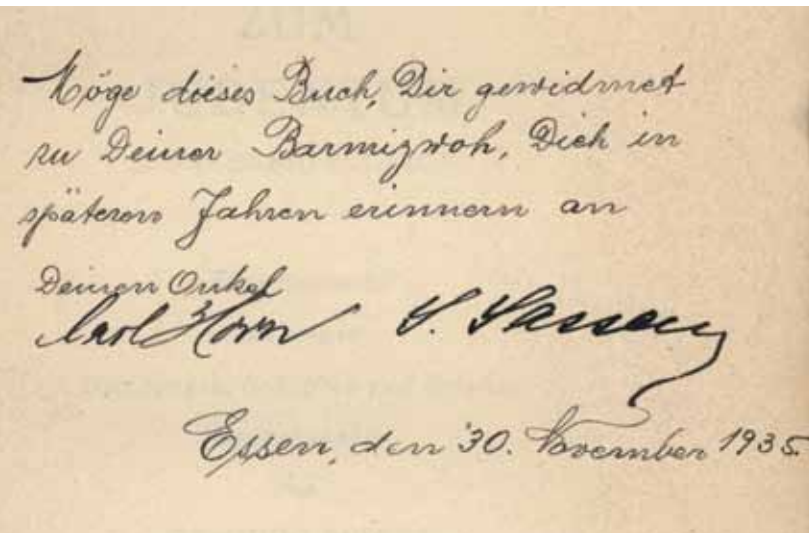 Möge dieses Buch, Dir gewidmet
zu Deiner Barmizwoh, Dich in
späteren Jahren erinnern an
Deinen Onkel
Carl Horn S. Sassen
Essen, den 30. November 1935